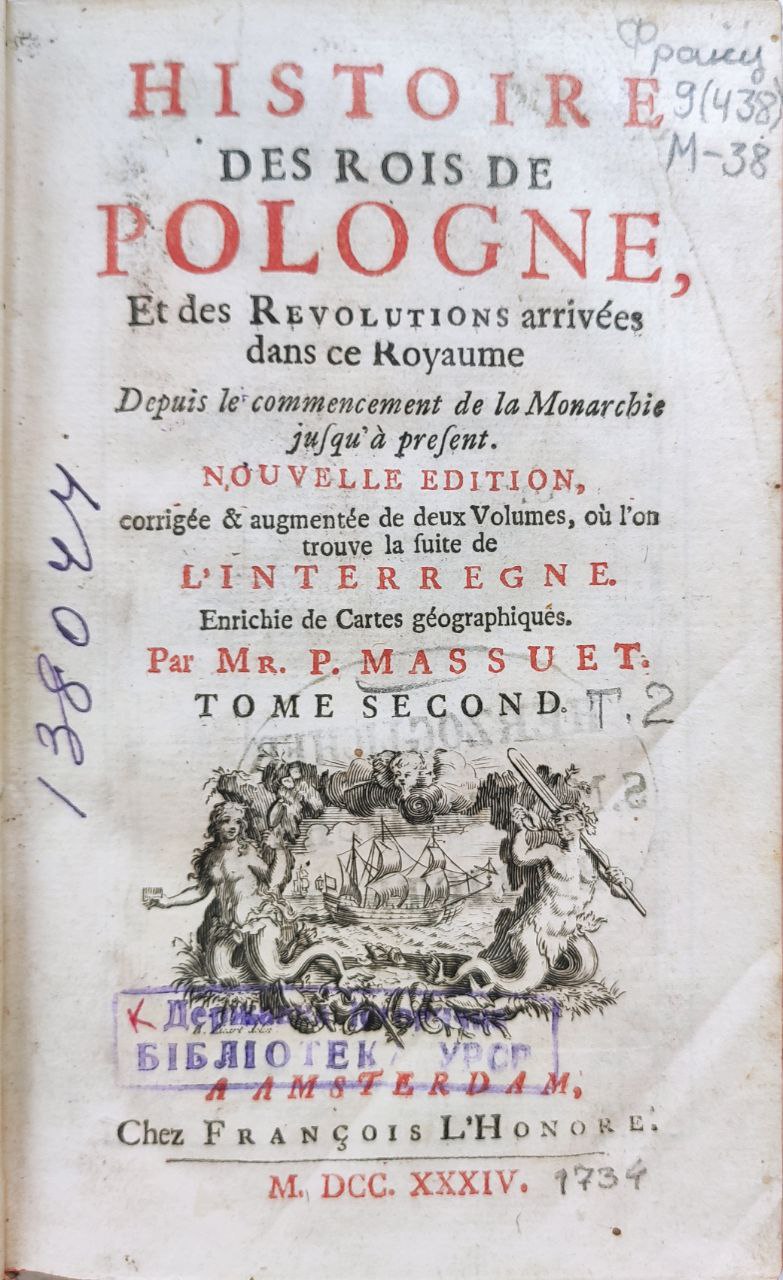 Франц
9(438)
М-38
HISTOIRE
DES ROIS DE
POLOGNE,
Et des REVOLUTIONS arrivées
dans ce Royaume
Depuis le commencement de la Monarchie
juſqu'à preſent.
NOUVELLE EDITION,
corrigée & augmentée de deux Volumes, où l'on
trouve la ſuite de
L'INTERREGNE.
Enrichie de Cartes géographiques.
Par MR. P. MASSUET.
TOME SECOND. Т.2
HERZOGLICHE
138044
К Державна
БІБЛІОТЕКА УРСР
A AMSTERDAM,
Chez FRANÇOIS L'HONORE.
M. DCC. XXXIV. 1734